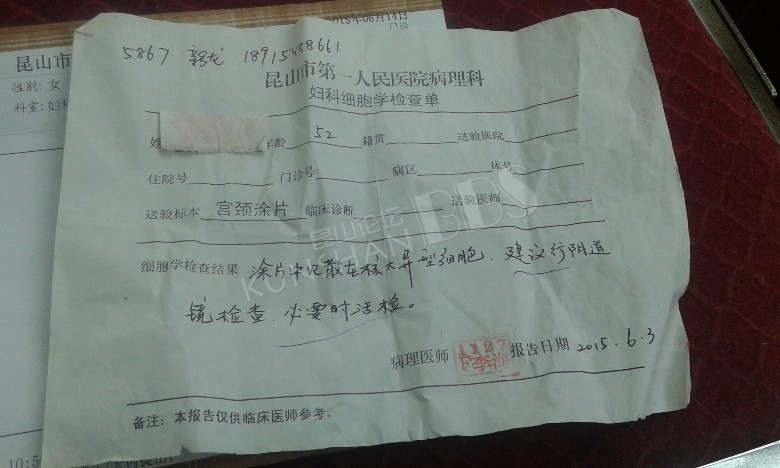 2015年06月14日
门诊
昆山市
性别: 女
科室: 妇科
5867 18915488661
昆山市第一人民医院病理科
妇科细胞学检查单
姓 年龄 52 籍贯 送验医院
住院号 门诊号 病区 床号
送验标本 宫颈涂片 临床诊断 送验医师
细胞学检查结果 涂片中见散在核大异型细胞、建议行阴道
镜检查、必要时活检。
病理医师 1127 报告日期 2015.6.3
备注: 本报告仅供临床医师参考。
昆山论坛
KUNSHAN BBS
10:5